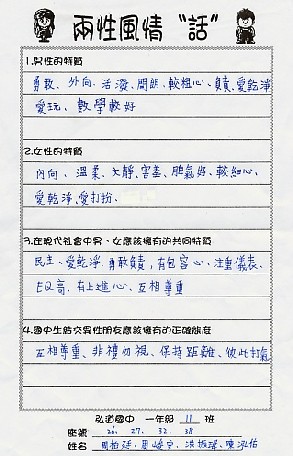 兩性風情“話”
1.男性的特質
勇敢、外向、活潑、開朗、較粗心、負責、愛乾淨
愛玩、數學較好
2.女性的特質
內向、溫柔、文靜、害羞、脾氣好、較細心、
愛乾淨、愛打扮、
3.在現代社會中男、女應該擁有的共同特質
民主、愛乾淨、勇敢負責，有包容心、注重儀表、
EQ高、有上進心、互相尊重
4.國中生結交異性朋友應該擁有的正確態度
互相尊重、非禮勿視、保持距離、彼此打氣
弘道國中 一年級 11 班
座號 26. 27. 32. 38
姓名 周柏廷、